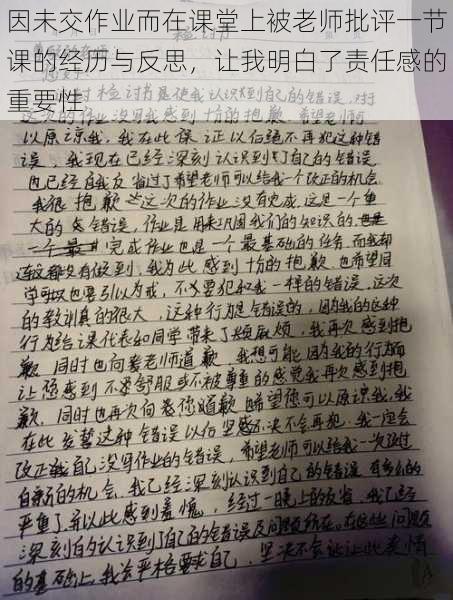 因未交作业而在课堂上被老师批评一节
课的经历与反思，让我明白了责任感的
重要性
检讨书是使我认识到自己的错误，对
这次的作业没写我感到十份的抱歉，希望老师可
以原谅我，我在此保证以后绝不再犯这种错
误，我现在已经深刻认识到了自己的错误
内已经自我反省过了希望老师可以给我一个改正的机会
我很抱歉这次的作业没有完成，这是一个重
大的错误，作业是用来巩固我们的知识的
一个最完成作业也是一个最基础的任务，而我却
连这都没有做到，我为此感到十份的抱歉，也希望同
学可以也要引以为戒，不要犯和我一样的错误，这次
的教训真的很大，这种行为是错误的，因为我的这种
行为给课代表和同学带来了烦麻烦，我再次感到抱
歉，同时也向老师道歉，我想可能因为我的行为而
让您感到不舒服或不被尊重的感觉我再次感到抱
歉，同时也再次向您道歉希望您可以原谅我，我
在此发誓这种错误以后坚决不会再犯，我一定会
改正我自己没写作业的错误，希望老师可以给我一次改过
自新的机会，我已经深刻认识到自己的错误
严重了并以此感到羞愧，经过一晚上的反省，我已经
深刻的认识到了自己的错误及问题所在，在这些问题
的基础上，我会严格要求自己，坚决不会让此类事情